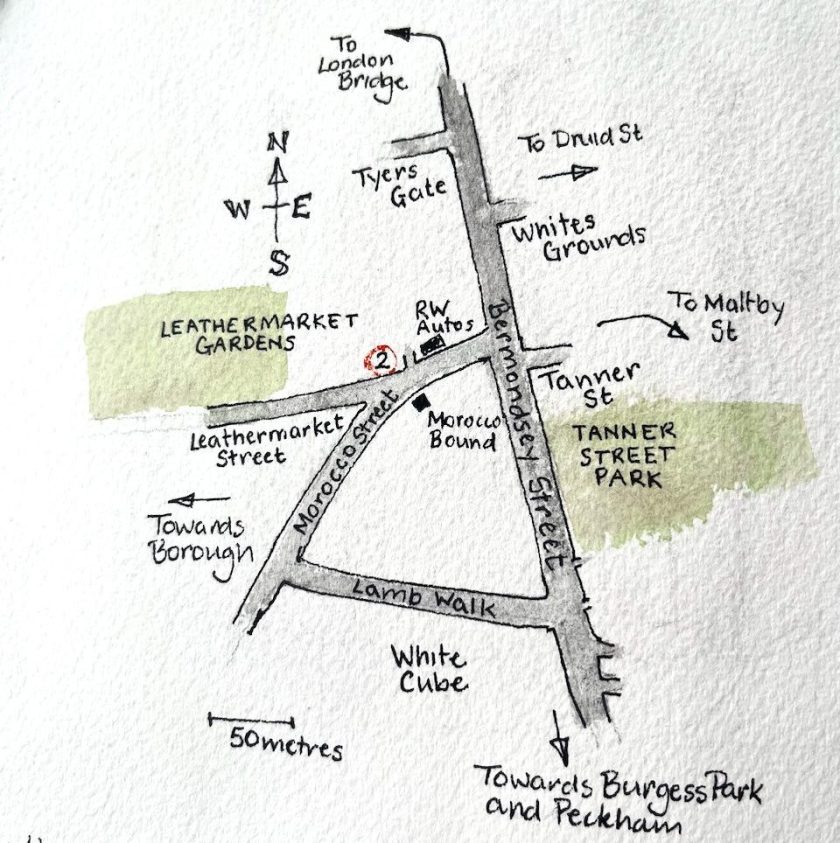 To
London
Bridge
N
W E
S
Tyers
Gate
To Druid St
Whites
Grounds
To Maltby
St
LEATHERMARKET
GARDENS
RW
Autos
2
Bermondsey Street
Tanner
St
TANNER
STREET
PARK
Leathermarket
Street
Morocco Street
Morocco
Bound
Towards
Borough
Lamb Walk
White
Cube
50metres
Towards Burgess Park
and Peckham